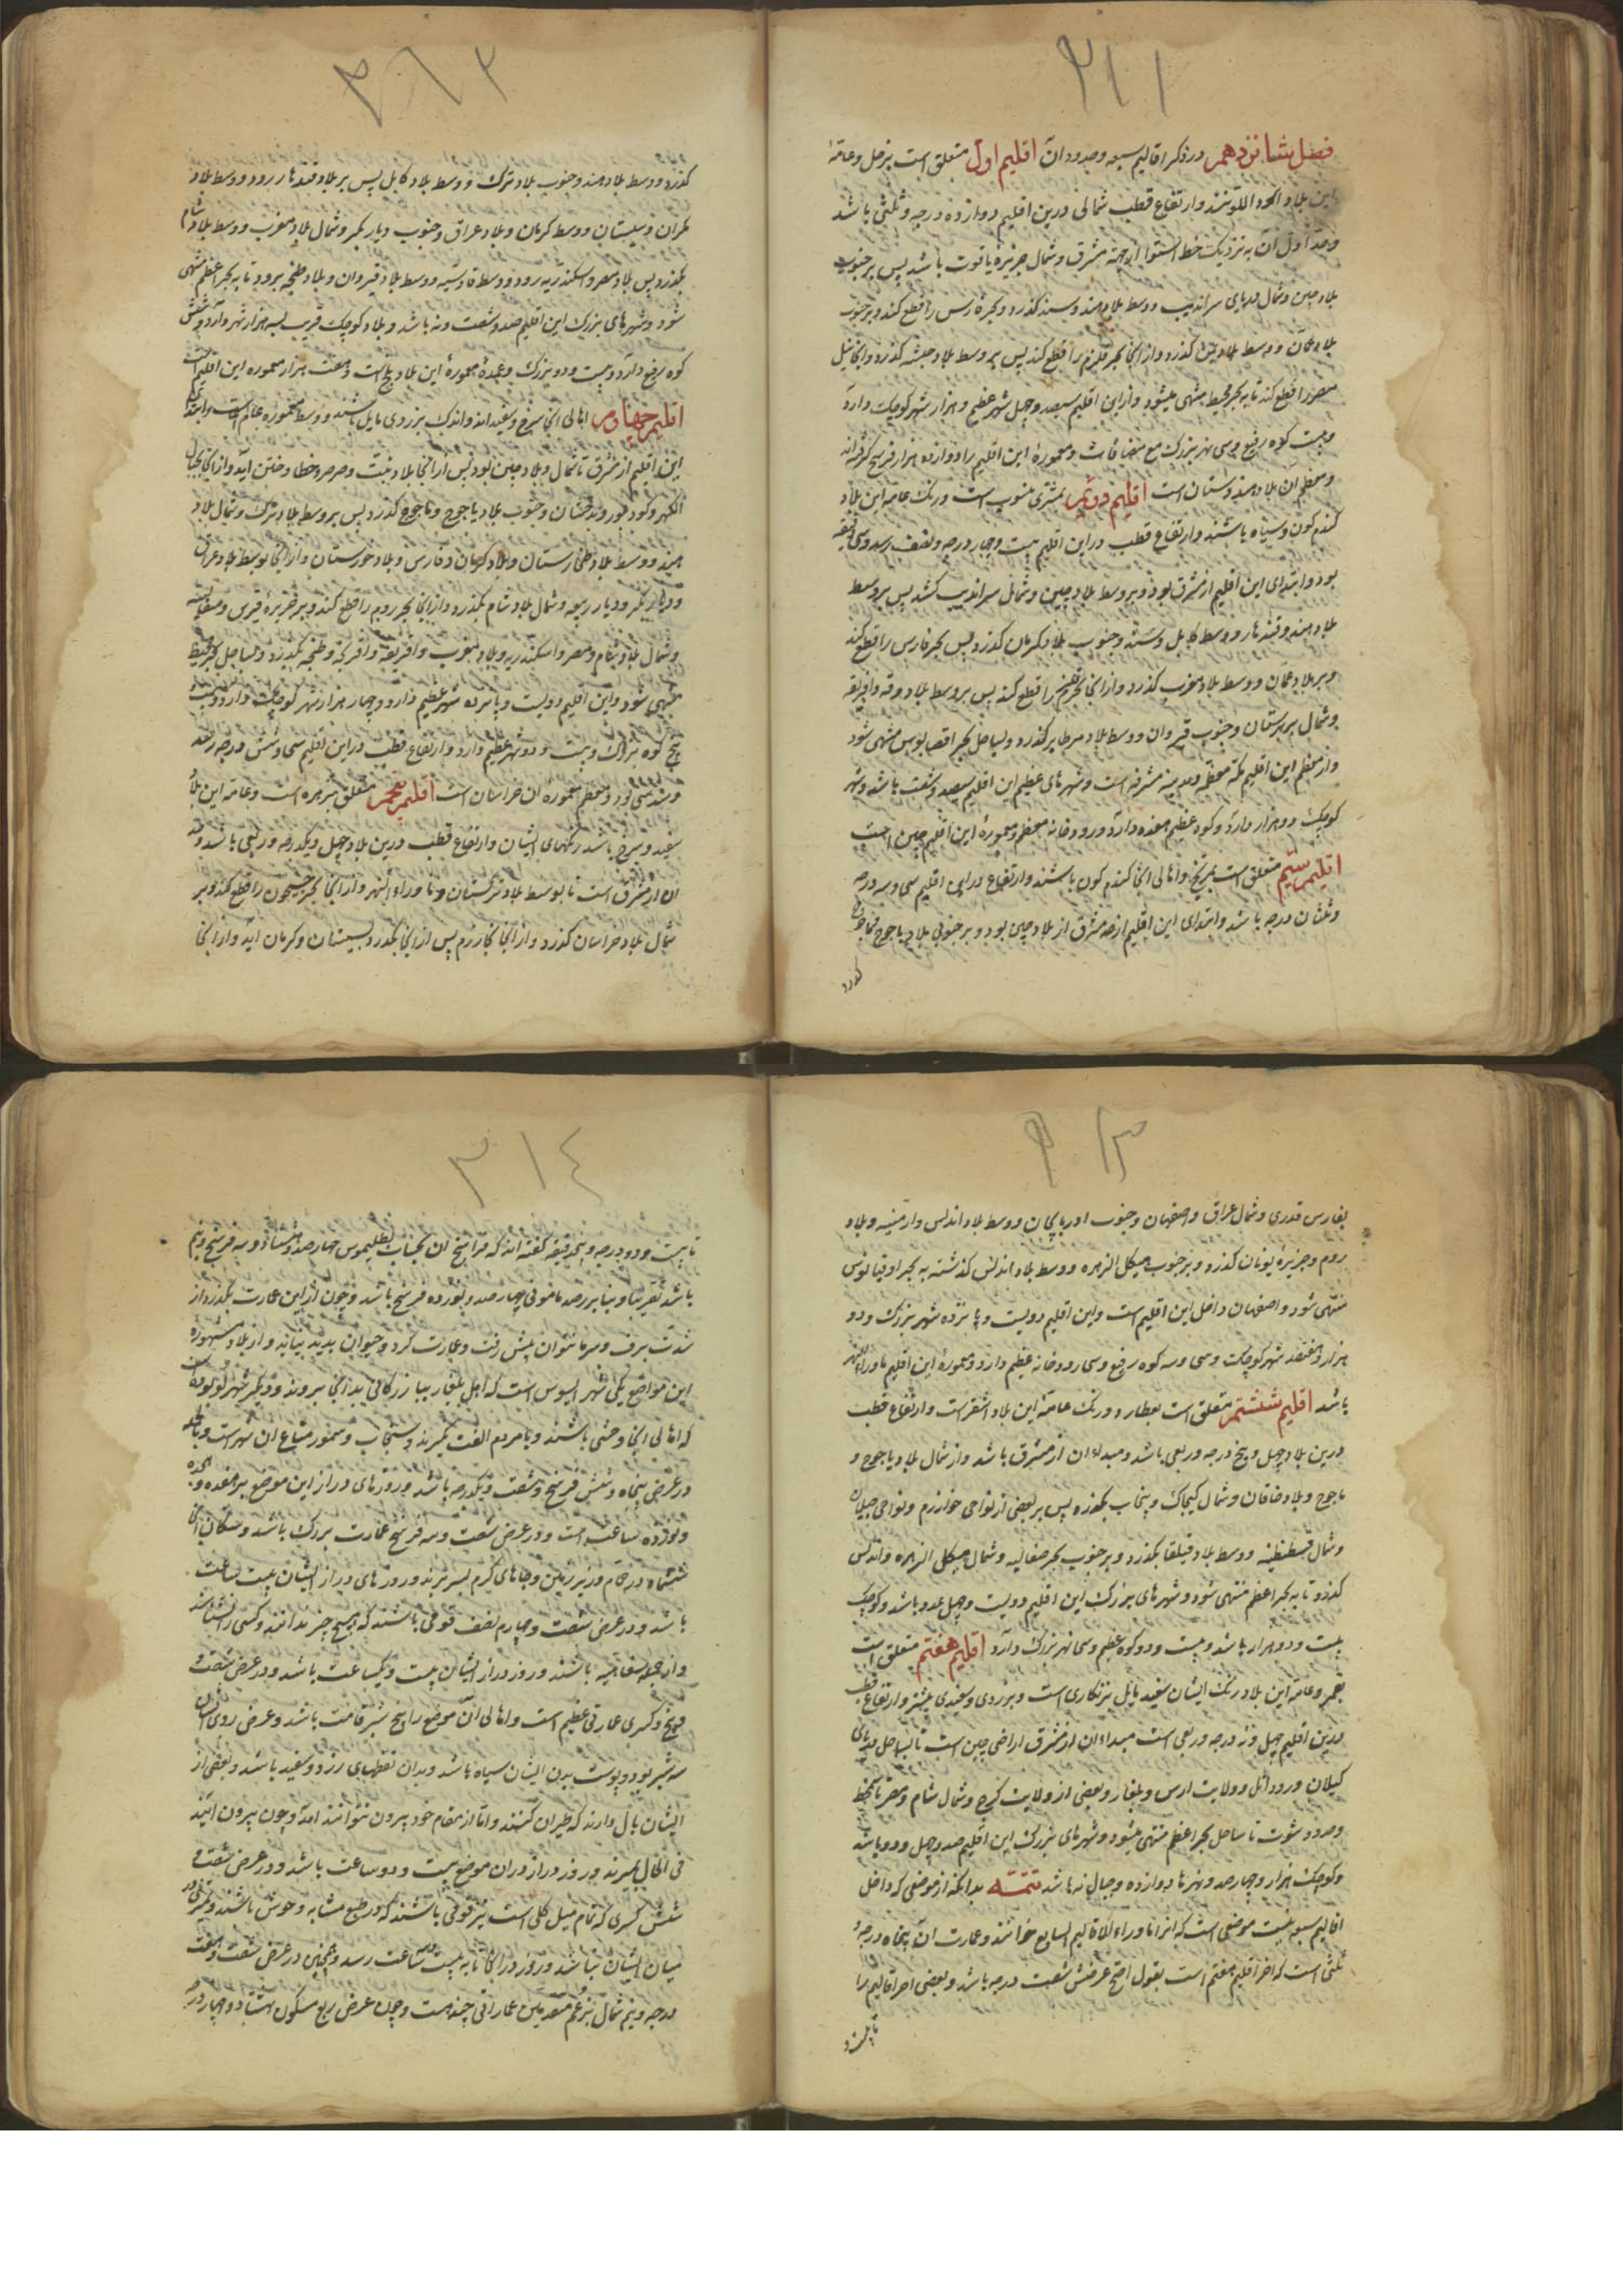 ۳۱۱
فصل شانزدهم در ذکر اقالیم سبعه و حدود آن اقلیم اول متعلق است بزحل و عامهٔ
این بلاد اسود اللونند و ارتفاع قطب شمالی درین اقلیم دوازده درجه و ثلثی باشد
و حد اول آن به نزدیک خط استوا از جهة مشرق و شمال جزیرهٔ یاقوت باشد پس بر جنوب
بلاد چین و شمال دریای سراندیب و وسط بلاد هند و سند گذرد و بحر فارس را قطع کند و بر جنوب
بلاد عمان و وسط بلاد یمن گذرد و از آنجا بحر قلزم را قطع کند پس بر وسط بلاد حبشه گذرد و آنجا نیل
مصر را قطع کند تا به بحر محیط منتهی میشود و از این اقلیم سیصد و چهل شهر عظیم و هزار شهر کوچک دارد
و بیست کوه رفیع و سی نهر بزرگ مع مضافات و معمورهٔ این اقلیم را دوازده هزار فرسخ گرفته‌اند
و معظم آن بلاد هندوستان است اقلیم دویم بمشتری منسوب است و رنگ عامهٔ این بلاد
گندم کون و سیاه باشند و ارتفاع قطب در این اقلیم بیست و چهار درجه و نصف رسد و سی دقیقه
بود و ابتدای این اقلیم از مشرق بود و بر وسط بلاد چین و شمال سراندیب کشد پس بر وسط
بلاد هند و قندهار و وسط کابل و سند و جنوب بلاد مکران گذرد پس بحر فارس را قطع کند
و بر بلاد عمان و وسط بلاد عرب گذرد و از آنجا بحر قلزم را قطع کند پس بر وسط بلاد برقه و افریقه
و شمال بربرستان و جنوب قیروان و وسط بلاد گذرد و بساحل بحر منتهی شود
و از معظم این اقلیم مکه معظمه و مدینه مشرفه است و شهرهای عظیم این اقلیم سیصد و شصت باشد و شهر
کوچک دو هزار دارد و کوه عظیم هفده دارد و رودخانه معظم و معمورهٔ این اقلیم چین است
اقلیم سیّم متعلق است بمریخ و اهالی آنجا گندم کون باشند و ارتفاع در این اقلیم سی و سه درجه
و ثلثان درجه باشد و ابتدای این اقلیم از حد مشرق از بلاد چین بود و بر جنوبی بلاد یاجوج ماجوج
گذرد
۳۱۲
گذرد و وسط بلاد هند و جنوب بلاد ترک و وسط بلاد کابل پس بر بلاد قندهار رود و وسط بلاد
مکران و سیستان و وسط کرمان و بلاد عراق و جنوب دیار بکر و شمال بلاد مغرب و وسط بلاد شام
بگذرد پس بلاد مصر و اسکندریه رود و وسط قادسیه و وسط بلاد قیروان و بلاد طنجه برود تا به بحر اعظم منتهی
شود و شهرهای بزرگ این اقلیم صد و شصت و نه باشد و بلاد کوچک قریب بسه هزار شهر دارد و شش
کوه رفیع دارد و بیست و دو بزرگ و عمدهٔ معمورهٔ این بلاد بلخ است و هفت هزار معموره این اقلیم است
اقلیم چهارم اهالی آنجا سرخ و سفیدند و اندک بزردی مایل باشند و وسط معموره عالم است و ابتدای
این اقلیم از مشرق تا شمال و بلاد چین بود پس از آنجا بلاد تبت و صرصر و خطا و ختن آید و از آنجا بجبال
و کوه بلور و بدخشان و جنوب بلاد یاجوج و ماجوج گذرد پس بر وسط بلاد ترک و شمال بلاد
هند و وسط بلاد طخارستان و بلاد کرمان و فارس و بلاد خوزستان و از آنجا بوسط بلاد عراق
و دیار بکر و دیار ربیعه و شمال بلاد شام بگذرد و از آنجا بحر روم را قطع کند و بر جزیرهٔ قبرس و
و شمال بلاد شام و مصر و اسکندریه و بلاد مغرب و افریقه و افرنکه و طنجه بگذرد و بساحل بحر محیط
منتهی شود و این اقلیم دویست و پانزده شهر عظیم دارد و چهار هزار شهر کوچک دارد و بیست
پنج کوه بزرگ و بیست و دو نهر عظیم دارد و ارتفاع قطب در این اقلیم سی و شش درجه رسد
و معظم معموره آن خراسان است اقلیم پنجم متعلق بزهره است و عامهٔ این بلاد
سفید و سرخ باشد رنگهای ایشان و ارتفاع قطب درین بلاد چهل و یکدرجه و ربعی باشد و حد
آن از مشرق است تا بوسط بلاد ترکستان و ماوراء النهر و از آنجا بحر جیحون را قطع کند و بر
شمال بلاد خراسان گذرد و از آنجا بخوارزم پس از آنجا بگذرد بسیستان و کرمان آید و از آنجا
۳۱۳
بفارس قدری و شمال عراق و اصفهان و جنوب آذربایجان و وسط بلاد اندلس و ارمنیه و بلاد
روم و جزیرهٔ یونان گذرد و بر جنوب هیکل الزهره و وسط بلاد اندلس گذشته به بحر اوقیانوس
منتهی شود و اصفهان داخل این اقلیم است و این اقلیم دویست و پانزده شهر بزرگ و دو
هزار و هفتصد شهر کوچک و سی و سه کوه رفیع و سی رودخانه عظیم دارد و معمورهٔ این اقلیم ماوراء النهر
باشد اقلیم ششم متعلق است بعطارد و رنگ عامهٔ این بلاد اشقر است و ارتفاع قطب
درین بلاد چهل و پنج درجه و ربعی باشد و مبداء آن از مشرق باشد و از شمال بلاد یاجوج و
ماجوج و بلاد خاقان و شمال کیماک و پنجاب بگذرد پس بر بعضی از نواحی خوارزم و نواحی جیلان
و شمال قسطنطنیه و وسط بلاد بگذرد و بر جنوب بحر صقالیه و شمال هیکل الزهره و اندلس
گذرد تا به بحر اعظم منتهی شود و شهرهای بزرگ این اقلیم دویست و چهل عدد باشد و کوچک
بیست و دو هزار باشد و بیست و دو کوه عظیم و سی نهر بزرگ دارد اقلیم هفتم متعلق است
بقمر و عامهٔ این بلاد رنگ ایشان سفید مایل بزنکاری است و بزردی و سفیدی بیشتر و ارتفاع قطب
درین اقلیم چهل و نه درجه و ربعی است مبداء آن از مشرق اراضی چین است تا بساحل دریای
گیلان و رود اتل و ولایت ارس و بلغار و بعضی از ولایت گرج و شمال شام و مصر تا محیط
و حدود تا ساحل بحر اعظم منتهی میشود و شهرهای بزرگ این اقلیم صد و چهل و دو باشد
و کوچک هزار و چهارصد و نهرها دوازده و جبال نه باشد تتمه بدانکه از موضعی که داخل
اقالیم سبعه نیست موضعی است که آنرا ماوراء الاقالیم السابع خوانند و عمارت آن پنجاه درجه و
ثلثی است که آخر اقلیم هفتم است بقول اصح عرضش شصت درجه باشد و بعضی آخر اقالیم را
تا بیست و
۳۱٤
تا بیست و دو درجه و پنج دقیقه گفته‌اند که فراسخ آن بحساب بطلیموس چهارصد و هشتاد و سه فرسخ و نیم
باشد تقریبا و بنا بر رصد مأمونی چهارصد و نوزده فرسخ باشد و چون از این عمارت بگذرد از
شدت برف و سرما نتوان پیش رفت و عمارت کرد و حیوان پدید نیاید و از بلاد مشهورهٔ
این مواضع یکی شهر ایسوس است که اهل بلغار ببازرگانی بدانجا بروند و دیگر شهر است
که اهالی آنجا وحشی باشند و با مردم الفت نگیرند و سنجاب و سمور متاع آن شهر است و بالجمله
در عرض پنجاه و شش فرسخ و هشت و یکدرجه باشد و روزهای دراز این موضع به هفده و هجده
و نوزده ساعت است و در عرض شصت و سه فرسخ عمارت بزرگ باشد و سکان آنجا
ششماه در حمام در زیر زمین و جاهای گرم بسر برند و روزهای دراز ایشان بیست ساعت
باشد و در عرض شصت و چهارم نصف قومی باشند که هیچ چیز ندانند و کسی را نشناسند
و از جمله صقالبه باشند و روز دراز ایشان بیست و یکساعت باشد و در عرض شصت و
پنج و کسری عمارتی عظیم است و اهالی آن موضع را پنج شبر قامت باشد و عرض روی ایشان
سه شبر بود و پوست بدن ایشان سیاه باشد و بدان نقطهای زرد و سفید باشد و بعضی از
ایشان بال دارند که طیران کنند و اما از مقام خود بیرون نتوانند آمد و چون بیرون آیند
فی الحال بمیرند و روز دراز در آن موضع بیست و دو ساعت باشد و در عرض شصت و
شش کسری که تمام میل کلی است نیز قومی باشند که در طبع مشابه وحوش باشند و تمیزی در
میان ایشان نباشد و روز دراز آنجا تا به بیست و ساعت رسد و همچنین در عرض شصت و هفت
درجه و نیم شمال بزعم متقدمین عماراتی چند هست و چون عرض ربع مسکون هشتاد و چهار درجه